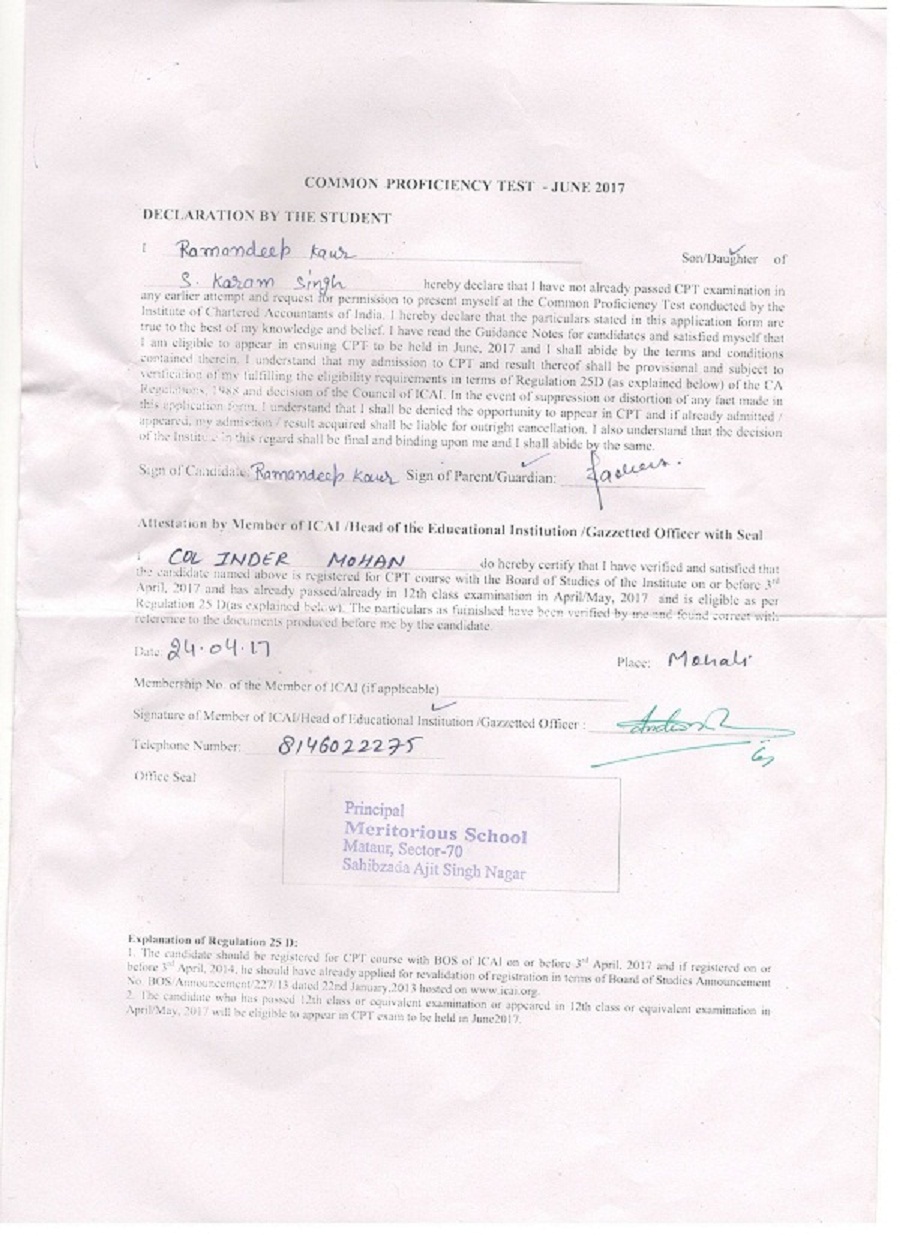 COMMON PROFICIENCY TEST - JUNE 2017
DECLARATION BY THE STUDENT
I Ramandeep Kaur Son/Daughter of
S. Karam Singh hereby declare that I have not already passed CPT examination in
any earlier attempt and request for permission to present myself at the Common Proficiency Test conducted by the
Institute of Chartered Accountants of India. I hereby declare that the particulars stated in this application form are
true to the best of my knowledge and belief. I have read the Guidance Notes for candidates and satisfied myself that
I am eligible to appear in ensuing CPT to be held in June, 2017 and I shall abide by the terms and conditions
contained therein. I understand that my admission to CPT and result thereof shall be provisional and subject to
verification of my fulfilling the eligibility requirements in terms of Regulation 25D (as explained below) of the CA
Regulations, 1988 and decision of the Council of ICAI. In the event of suppression or distortion of any fact made in
this application form, I understand that I shall be denied the opportunity to appear in CPT and if already admitted /
appeared, my admission / result acquired shall be liable for outright cancellation. I also understand that the decision
of the Institute in this regard shall be final and binding upon me and I shall abide by the same.
Sign of Candidate: Ramandeep Kaur Sign of Parent/Guardian:
Attestation by Member of ICAI /Head of the Educational Institution /Gazzetted Officer with Seal
I COL INDER MOHAN do hereby certify that I have verified and satisfied that
the candidate named above is registered for CPT course with the Board of Studies of the Institute on or before 3rd
April, 2017 and has already passed/already in 12th class examination in April/May, 2017 and is eligible as per
Regulation 25 D(as explained below). The particulars as furnished have been verified by me and found correct with
reference to the documents produced before me by the candidate.
Date: 24.04.17 Place: Mohali
Membership No. of the Member of ICAI (if applicable)
Signature of Member of ICAI/Head of Educational Institution /Gazzetted Officer :
Telephone Number: 8146022275
Office Seal
Principal
Meritorious School
Mataur, Sector-70
Sahibzada Ajit Singh Nagar
Explanation of Regulation 25 D:
1. The candidate should be registered for CPT course with BOS of ICAI on or before 3rd April, 2017 and if registered on or
before 3rd April, 2014, he should have already applied for revalidation of registration in terms of Board of Studies Announcement
No. BOS/Announcement/227/13 dated 22nd January,2013 hosted on www.icai.org.
2. The candidate who has passed 12th class or equivalent examination or appeared in 12th class or equivalent examination in
April/May, 2017 will be eligible to appear in CPT exam to be held in June2017.